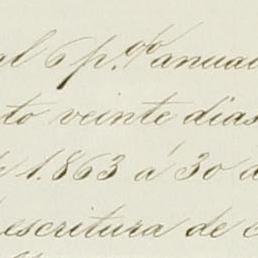 al 6 p.% anual
to veinte dias
1.863 á 30 d
escritura de c